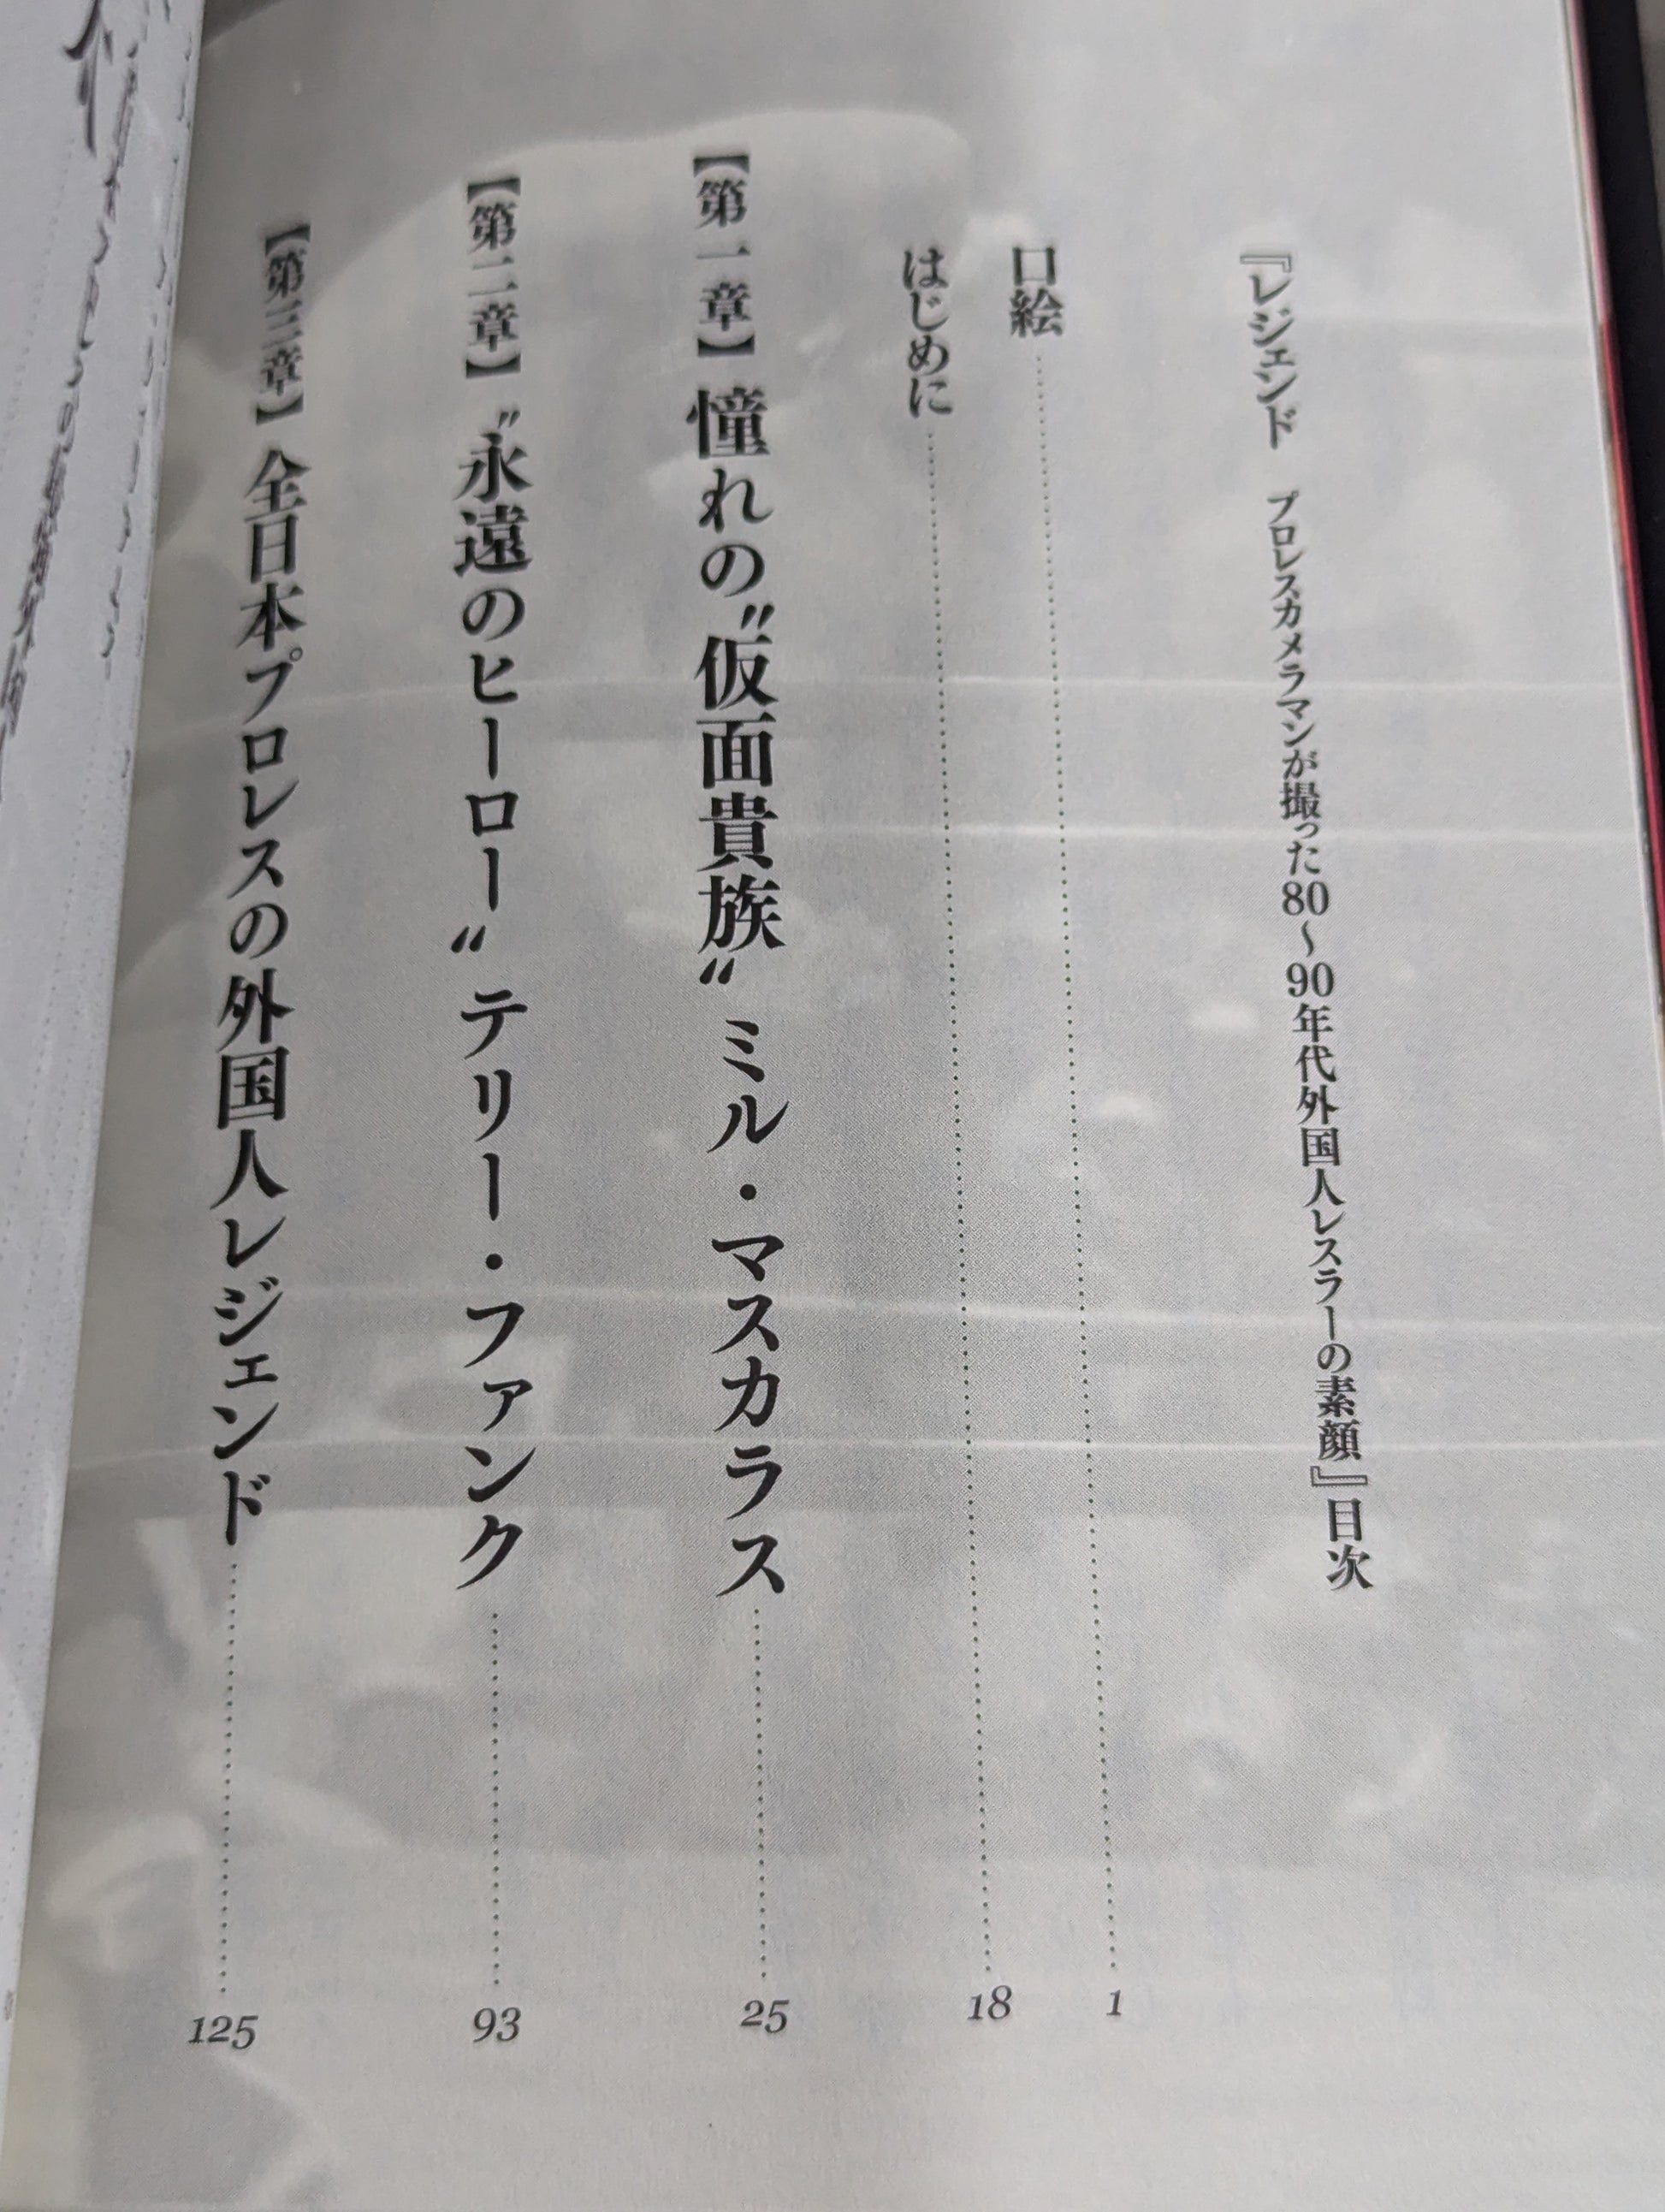 『レジェンド　プロレスカメラマンが撮った80〜90年代外国人レスラーの素顔』目次
口絵 1
はじめに 18
【第一章】憧れの〝仮面貴族〟ミル・マスカラス 25
【第二章】〝永遠のヒーロー〟テリー・ファンク 93
【第三章】全日本プロレスの外国人レジェンド 125